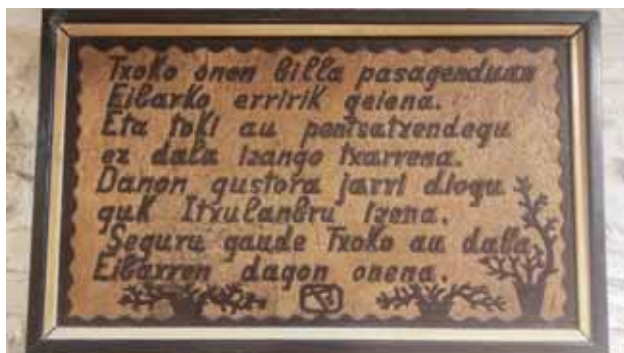 Txoko onen billa pasagenduan
Eibarko erririk geiena.
Eta toki au pentsatzendegu
ez dala izango txarrena.
Danon gustora jarri diogu
guk Itxulanbru izena.
Seguru gaude Txoko au dalla
Eibarren dagon onena.